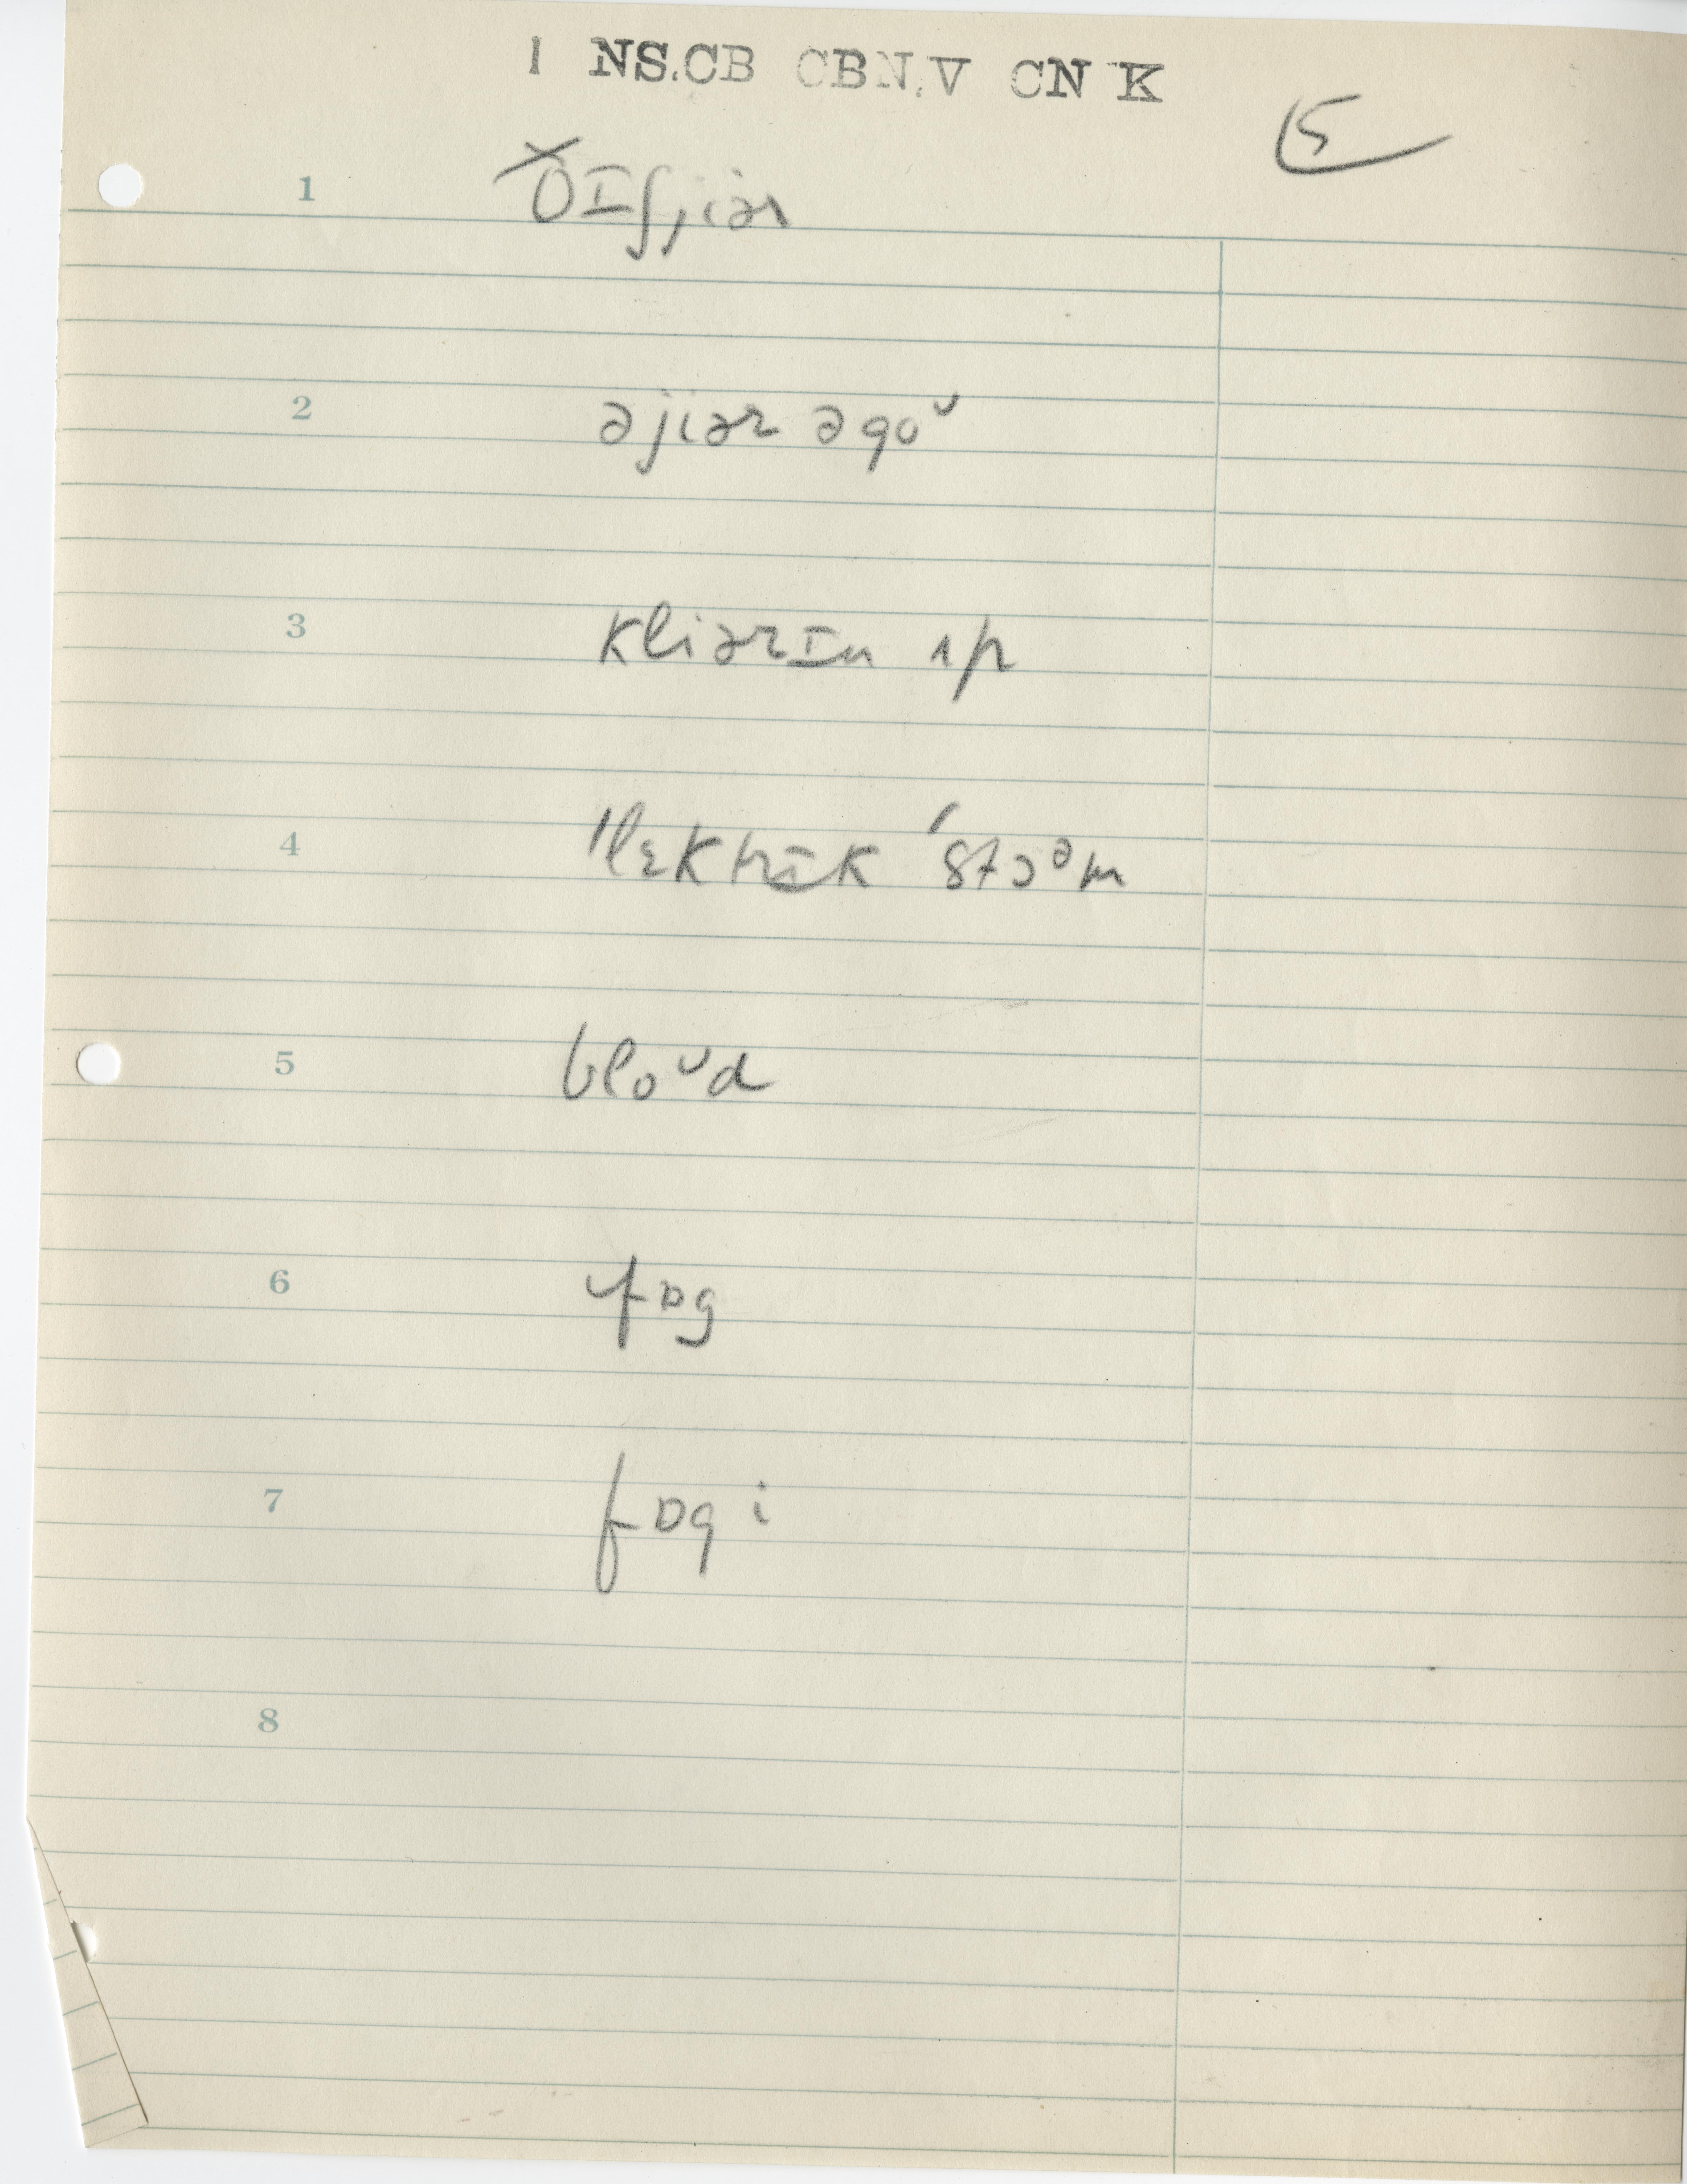 1 NS.CB CBN.V CN K
5
1 ðɪʃjiər
2 əjiər əgoᶷ
3 kliərɪn ʌp
4 ɪlɛktrɪk ˈstɔᵊm
5 bloᶷd
6 fɒg
7 fɒgi
8